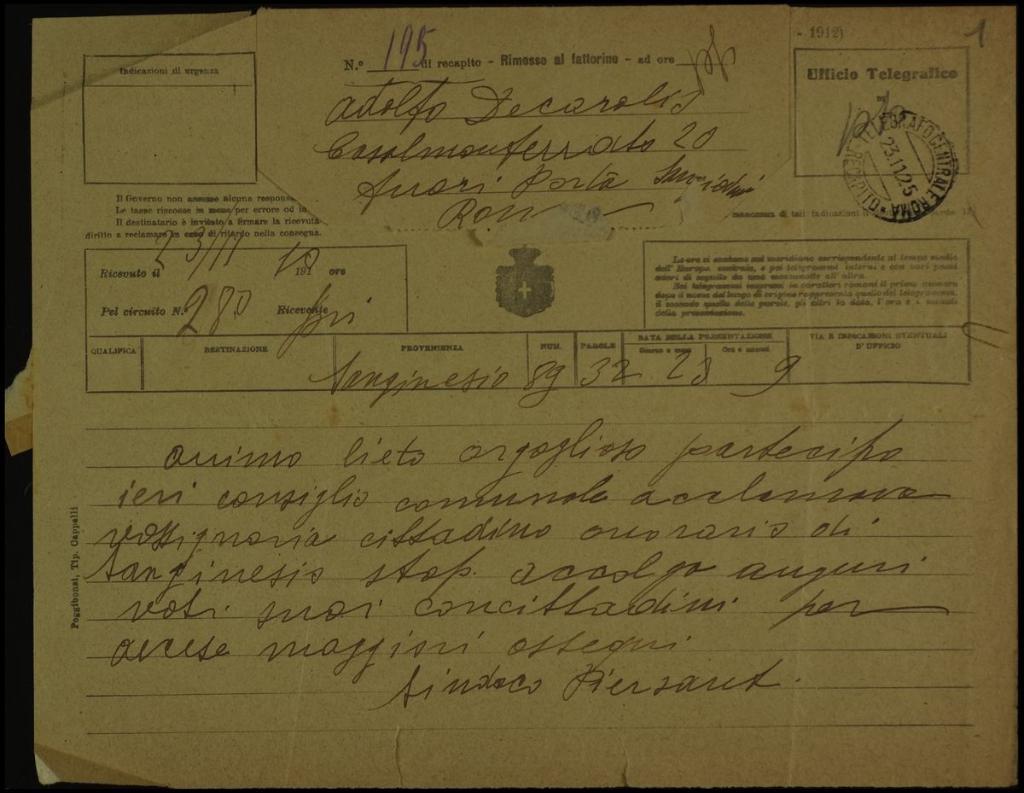 - 1912)
1
Indicazioni di urgenza
N.º 195 di recapito - Rimesso al fattorino - ad ore
Ufficio Telegrafico
Adolfo Decarolis
Casalmonferrato 20
fuori Porta
Rom
RECAPITO TELEGRAFO CENTRALE ROMA
23.11.25
Il Governo non assume alcuna respons
Le tasse riscosse in meno per errore od in
Il destinatario è invitato a firmare la ricevuta
diritto a reclamare in caso di ritardo nella consegna.
mancanza di tali indicazioni il
Ricevuto il 23/11 191 10 ore
Pel circuito N.º 280 Ricevente
Le ore si contano sul meridiano corrispondente al tempo medio
dell'Europa centrale, e pei telegrammi interni e con vari paesi
esteri di seguito da una mezzanotte all'altra.
Nei telegrammi impressi in caratteri romani il primo numero
dopo il nome del luogo di origine rappresenta quello del telegramma,
il secondo quello delle parole, gli altri la data, l'ora e i minuti
della presentazione.
QUALIFICA DESTINAZIONE PROVENIENZA NUM. PAROLE DATA DELLA PRESENTAZIONE VIA E INDICAZIONI EVENTUALI
Giorno e mese Ore e minuti D'UFFICIO
Sanginesio 89 32 23 9
animo lieto orgoglioso partecipo
ieri consiglio comunale acclamava
vossignoria cittadino onorario di
Sanginesio stop. accolga auguri
voti suoi concittadini per
ascese maggiori ossequi
Sindaco Piersant.
Poggibonsi, Tip. Cappelli